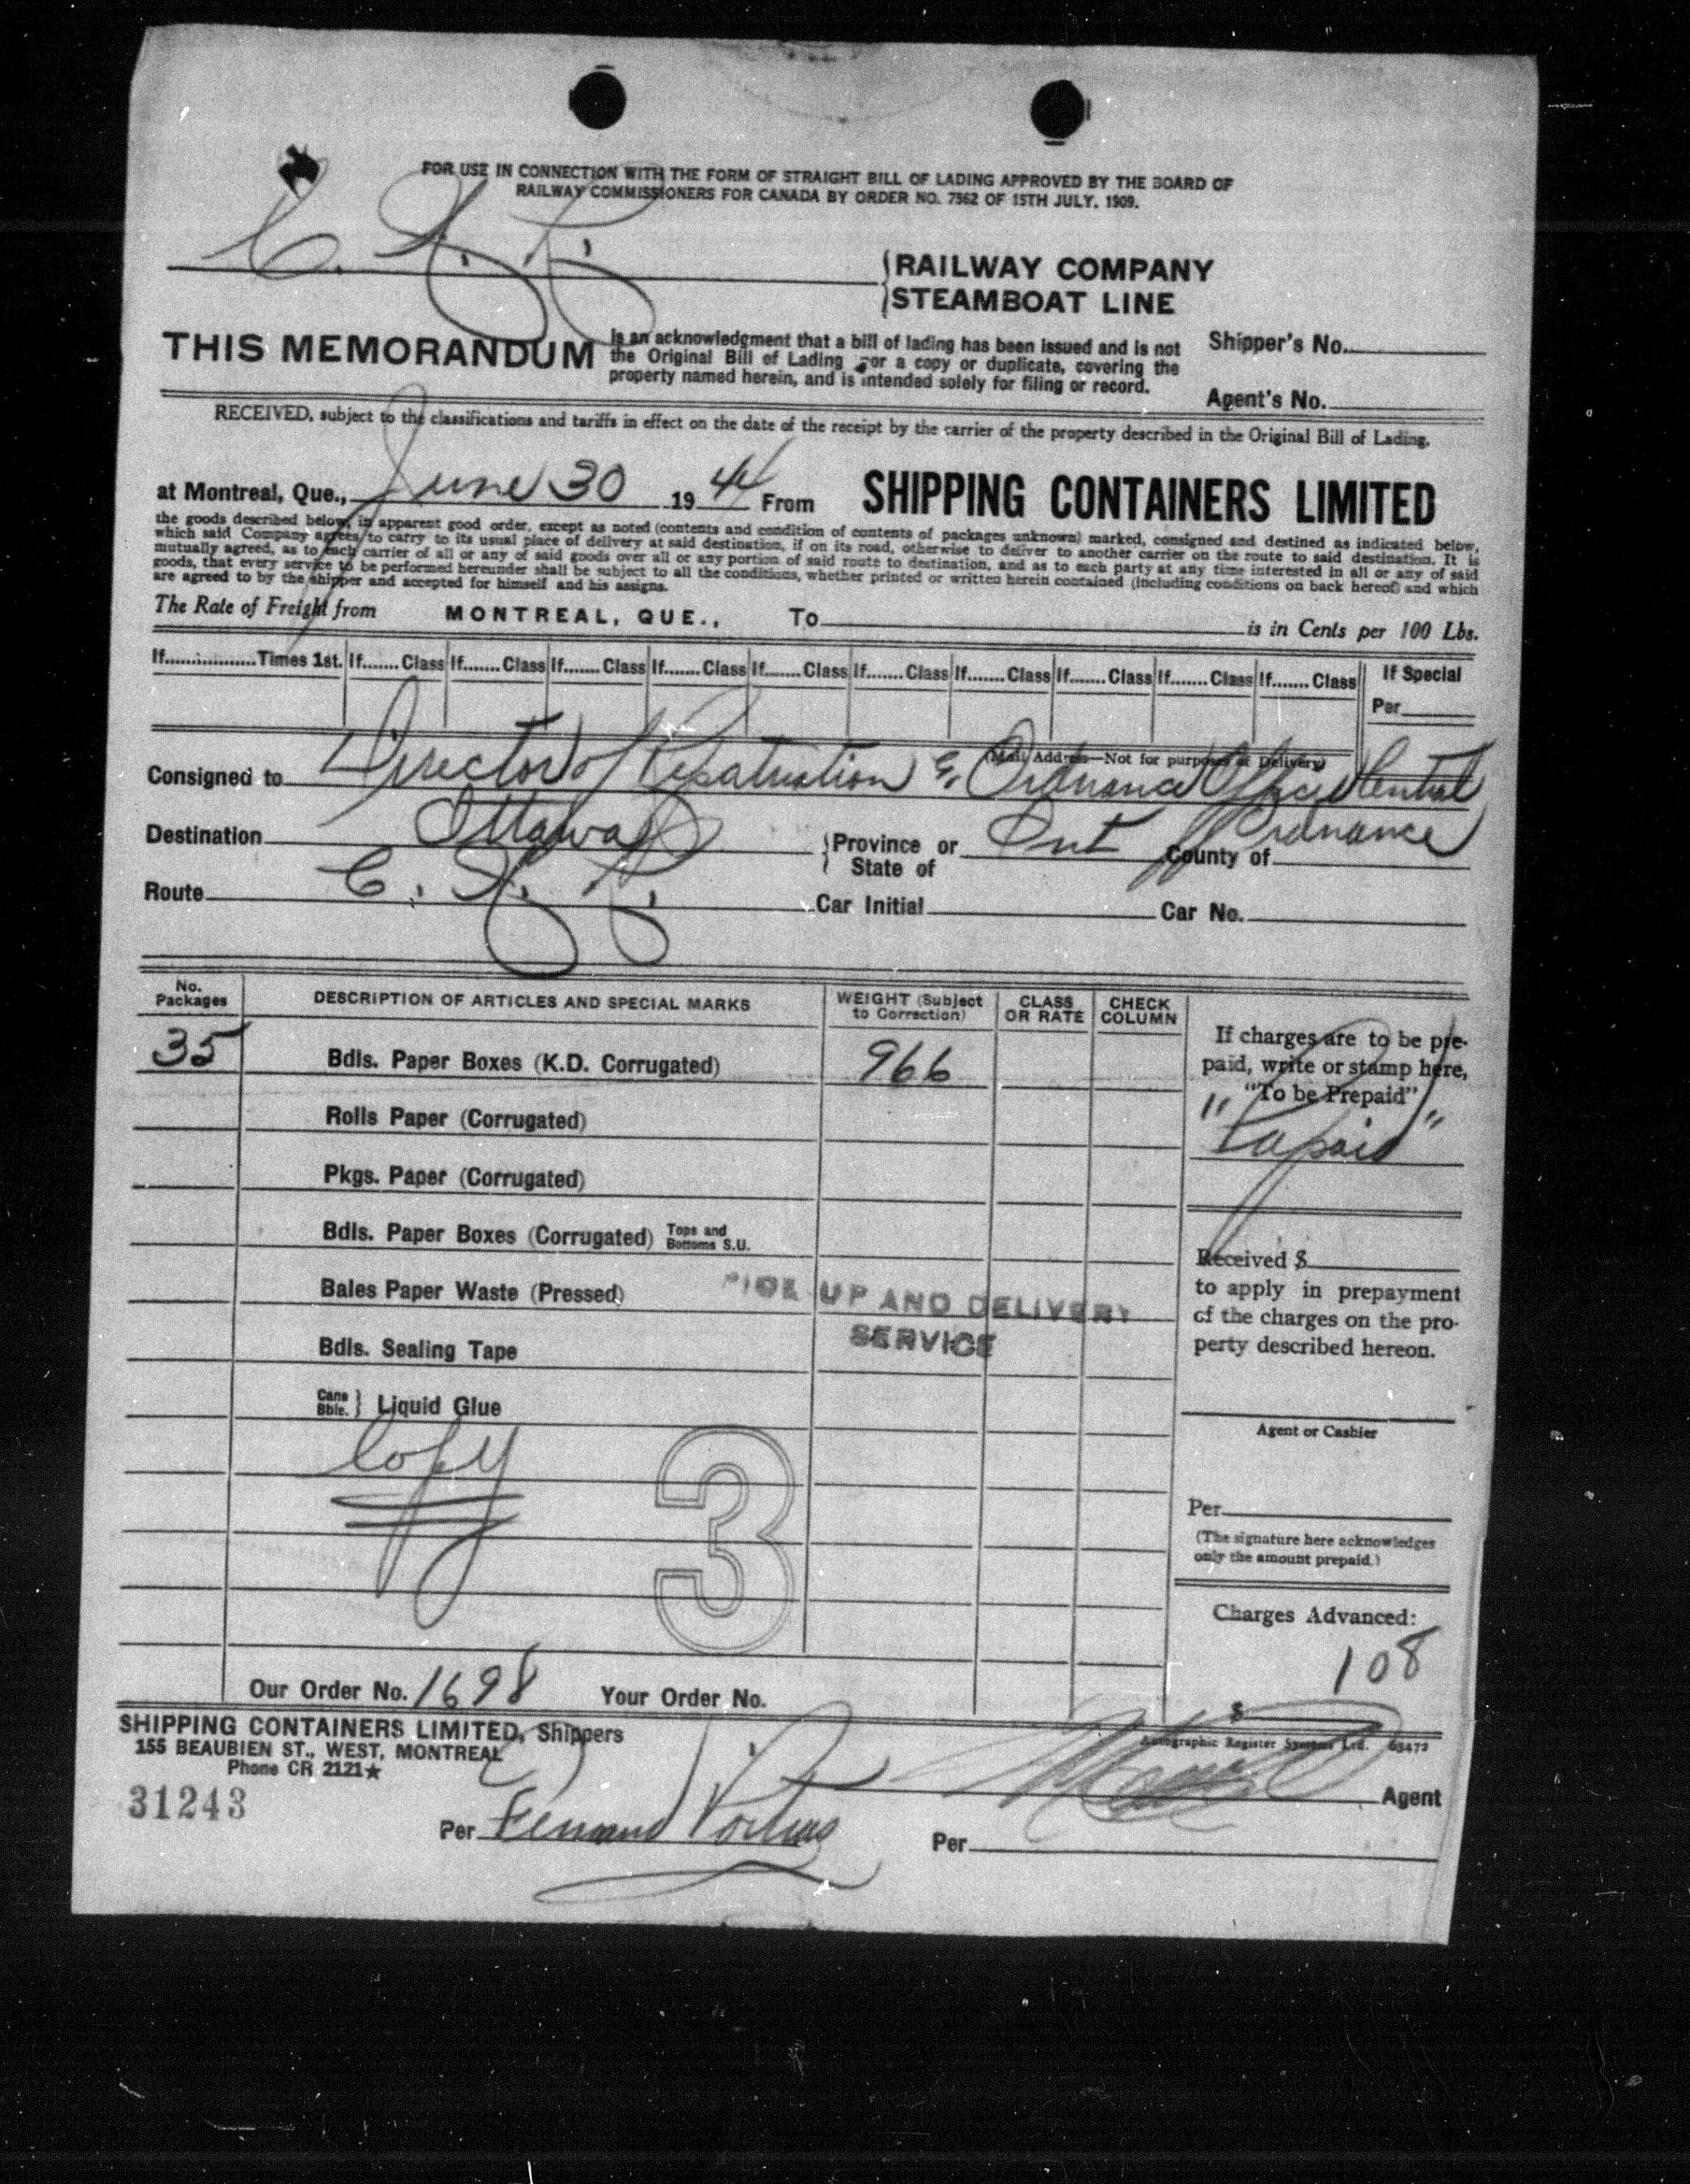 FOR USE IN CONNECTION WITH THE FORM OF STRAIGHT BILL OF LADING APPROVED BY THE BOARD OF
RAILWAY COMMISSIONERS FOR CANADA BY ORDER NO. 7562 OF 15TH JULY, 1909.
RAILWAY COMPANY
STEAMBOAT LINE
THIS MEMORANDUM
is an acknowledgment that a bill of lading has been issued and is not
the Original Bill of Lading, nor a copy or duplicate, covering the
property named herein, and is intended solely for filing or record.
Shipper's No.
Agent's No.
RECEIVED, subject to the classifications and tariffs in effect on the date of the receipt by the carrier of the property described in the Original Bill of Lading,
at Montreal, Que., June 30 1944 From SHIPPING CONTAINERS LIMITED
the goods described below, in apparent good order, except as noted (contents and condition of contents of packages unknown) marked, consigned and destined as indicated below,
which said Company agrees to carry to its usual place of delivery at said destination, if on its road, otherwise to deliver to another carrier on the route to said destination. It is
mutually agreed, as to each carrier of all or any of said goods over all or any portion of said route to destination, and as to each party at any time interested in all or any of said
goods, that every service to be performed hereunder shall be subject to all the conditions, whether printed or written herein contained (including conditions on back hereof) and which
are agreed to by the shipper and accepted for himself and his assigns.
The Rate of Freight from MONTREAL, QUE., To is in Cents per 100 Lbs.
If Times 1st. If Class If Class If Class If Class If Class If Class If Class If Class If Class If Class If Special
Per
(Mail Address—Not for purposes of Delivery)
Consigned to Director of Repatuation & Ordnance Officer Central
Ordnance
Destination Ottawa Province or State of Ont County of
Route Car Initial Car No.
No. Packages DESCRIPTION OF ARTICLES AND SPECIAL MARKS WEIGHT (Subject to Correction) CLASS OR RATE CHECK COLUMN
35 Bdls. Paper Boxes (K.D. Corrugated) 966
Rolls Paper (Corrugated)
Pkgs. Paper (Corrugated)
Bdls. Paper Boxes (Corrugated) Tops and Bottoms S.U.
Bales Paper Waste (Pressed)
PICK UP AND DELIVERY
SERVICE
Bdls. Sealing Tape
Cans Bbls. Liquid Glue
Copy
3
If charges are to be pre-
paid, write or stamp here,
"To be Prepaid"
Received $
to apply in prepayment
of the charges on the pro-
perty described hereon.
Agent or Cashier
Per
(The signature here acknowledges
only the amount prepaid.)
Charges Advanced:
108
$
Our Order No. 1698 Your Order No.
Autographic Register Systems Ltd. 63472
SHIPPING CONTAINERS LIMITED, Shippers
155 BEAUBIEN ST., WEST, MONTREAL
Phone CR 2121★
Agent
31243
Per
Per